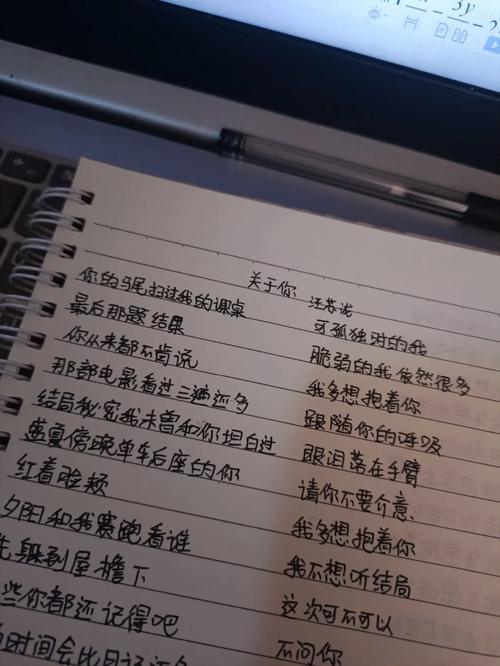 3y
关于你 汪苏泷
你的马尾扫过我的课桌
最后那题结果
你从来都不肯说
那部电影看过三遍还多
结局秘密我未曾和你坦白过
盛夏傍晚单车后座的你
红着脸颊
夕阳和我赛跑看谁
先躲到屋檐下
些你都还记得吧
时间会比日记还多
这孤独的我
脆弱的我依然很多
我多想抱着你
跟随你的呼吸
眼泪落在手臂
请你不要介意
我多想抱着你
我不想听结局
这次可不可以
不问你